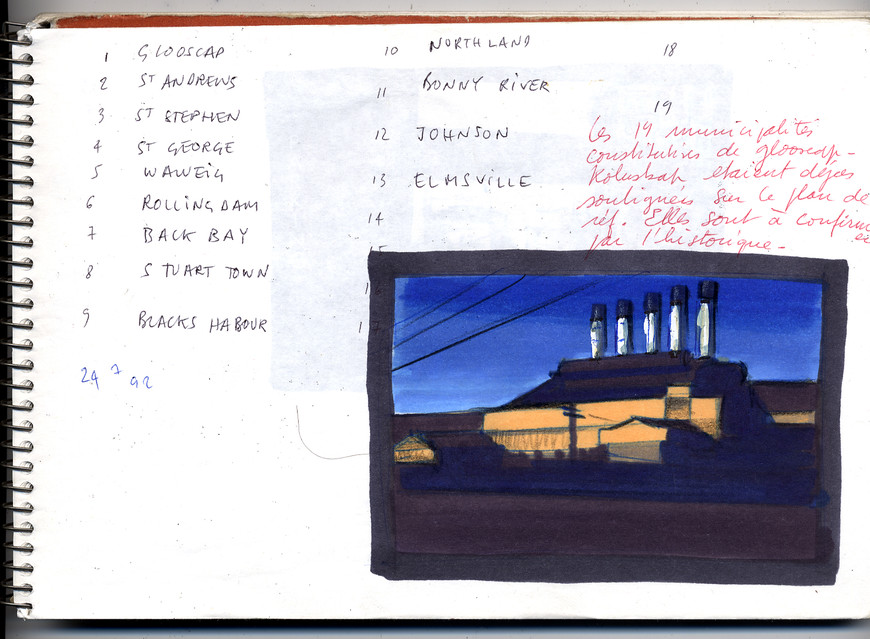 1 GLOOSCAP
2 ST ANDREWS
3 ST STEPHEN
4 ST GEORGE
5 WAWEIG
6 ROLLING DAM
7 BACK BAY
8 STUART TOWN
9 BLACKS HABOUR
24 7 92
10 NORTHLAND
11 BONNY RIVER
12 JOHNSON
13 ELMSVILLE
14
15
1
1
18
19
Les 19 municipalités
constitutives de glooscap-
Koluskap etaient déjas
soulignées sur le plan de
réf. Elles sont à confirm
ées
par l'historique-